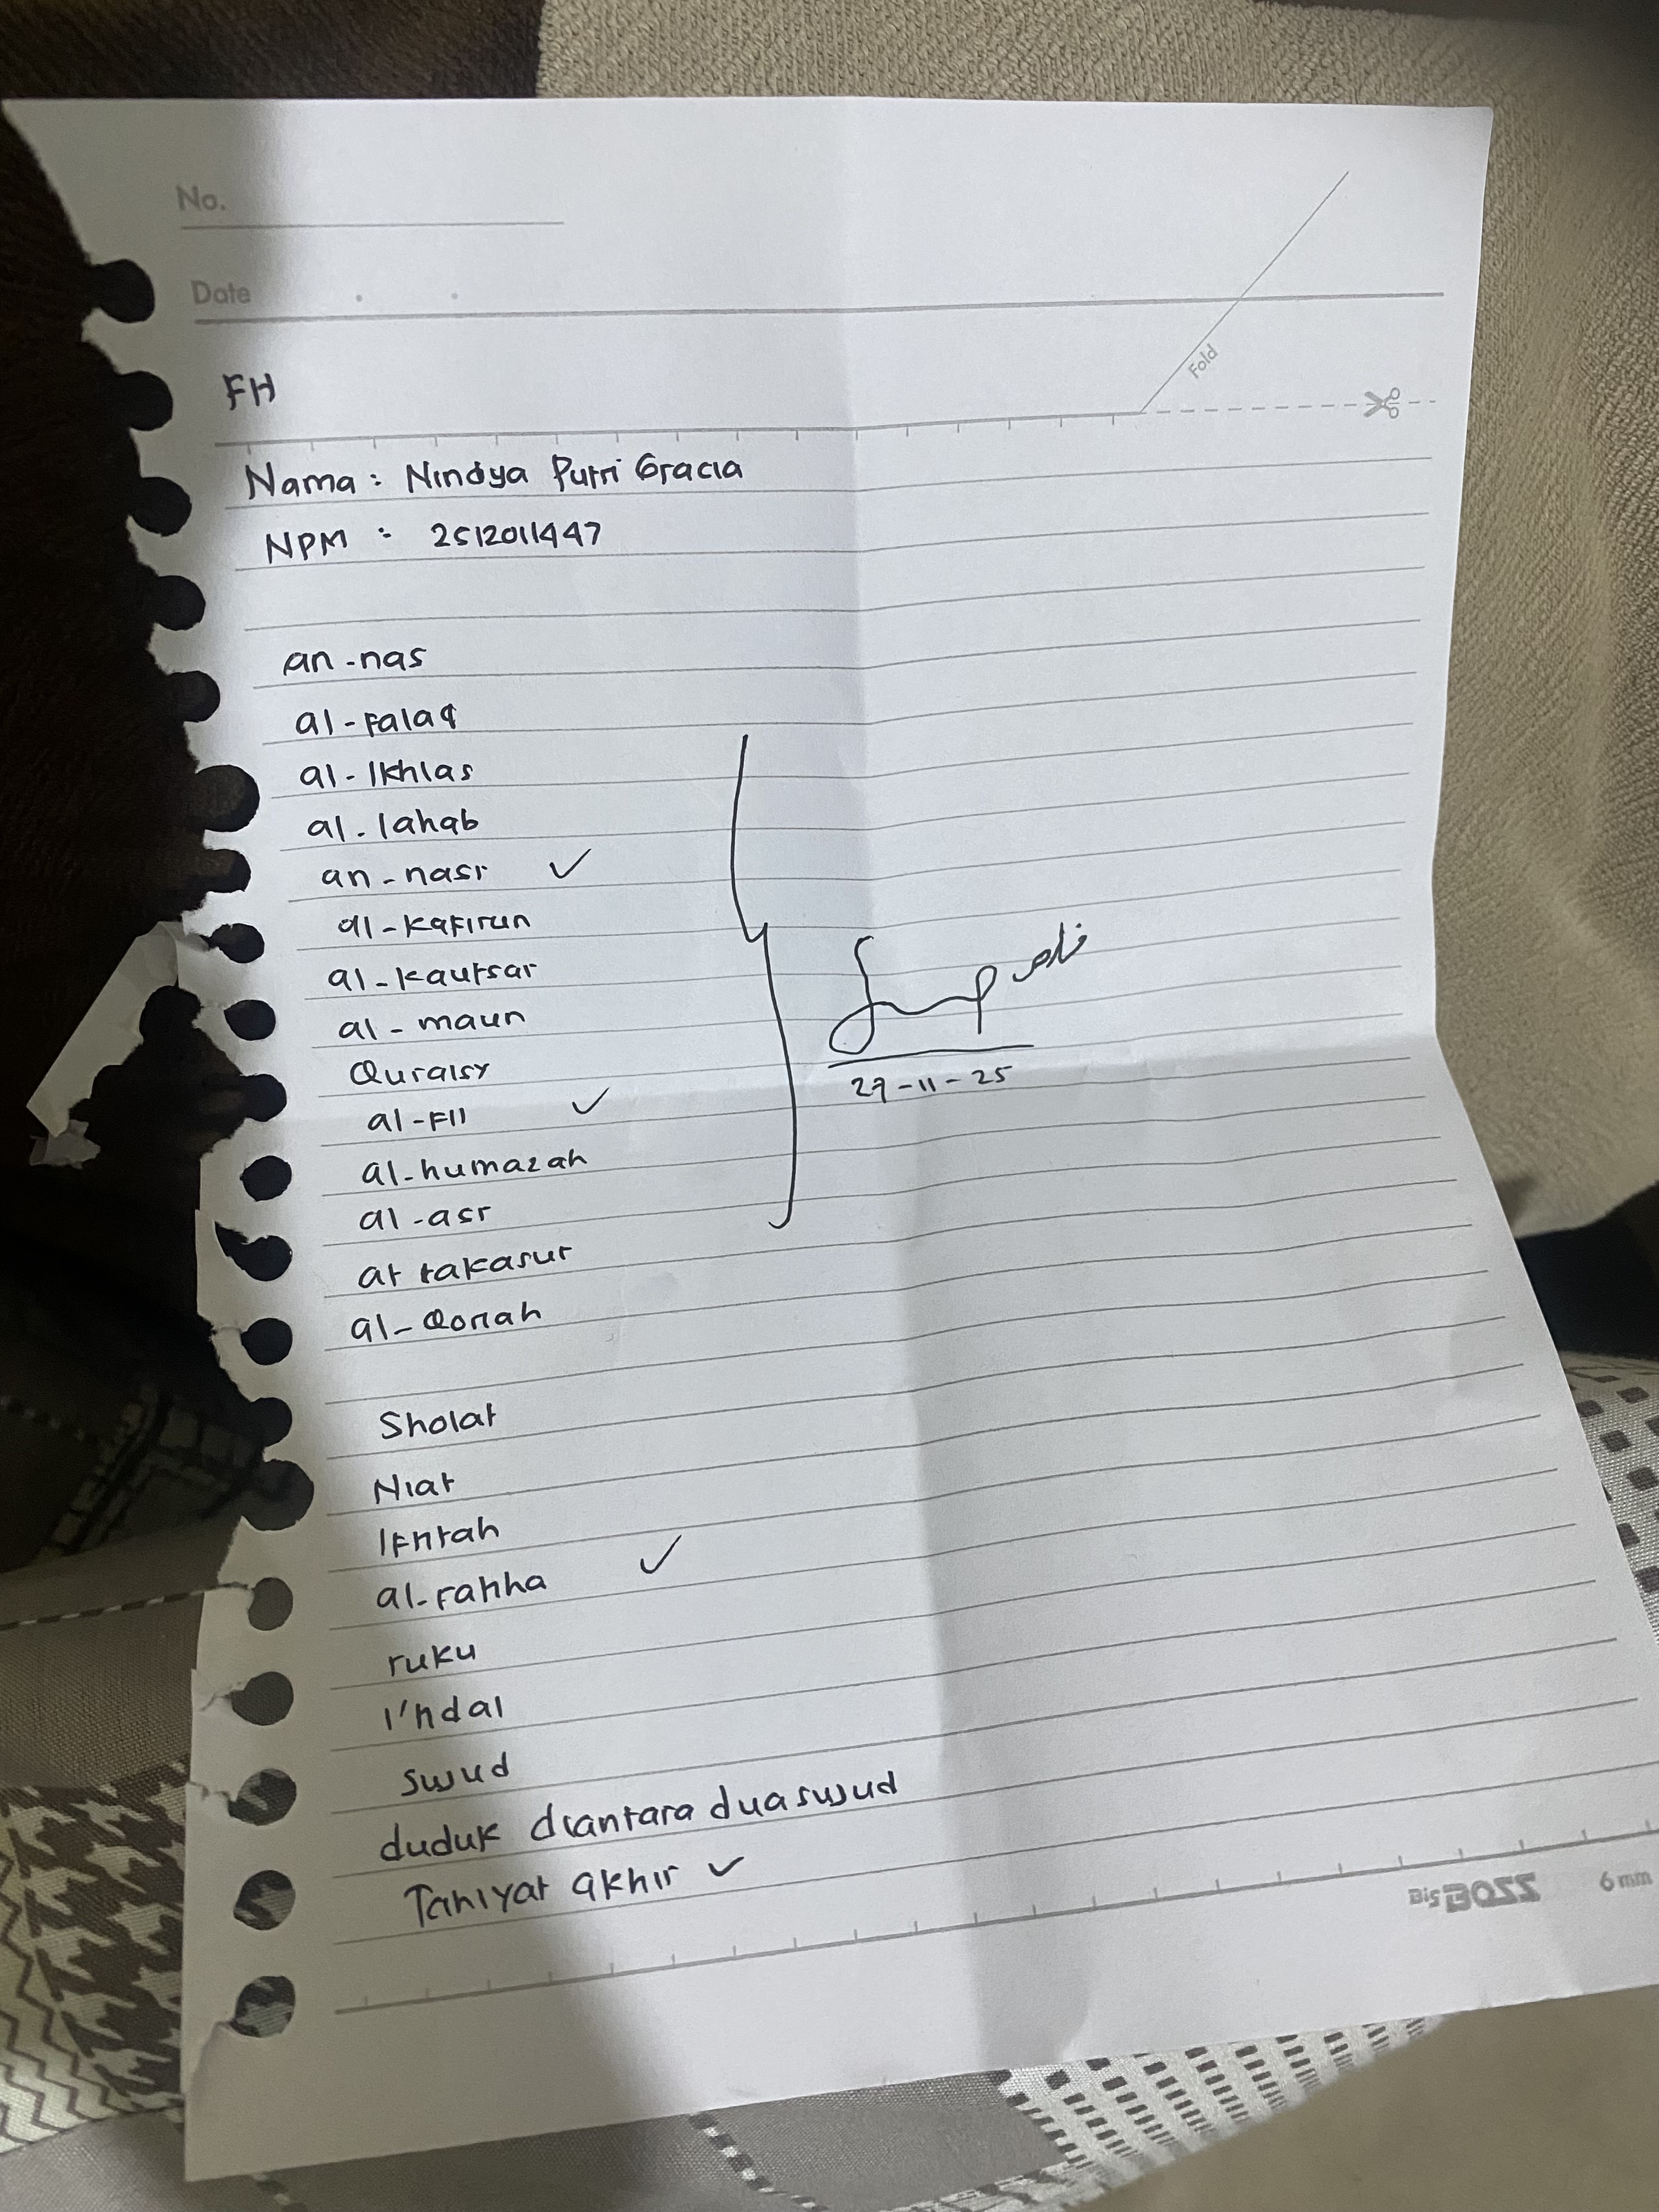 No.
Date
Fold
FH
Nama : Nindya Putri Gracia
NPM : 2512011447
an-nas
al-falaq
al-Ikhlas
al-lahab
an-nasr ✓
al-kafirun
al-kautsar
al-maun
Quraisy
al-Fil ✓
al-humazah
al-asr
at takasur
al-Qoriah
27-11-25
Sholat
Niat
Iftitah
al-fatiha ✓
ruku
i'tidal
sujud
duduk diantara dua sujud
Tahiyat akhir ✓
Big BOSS 6 mm